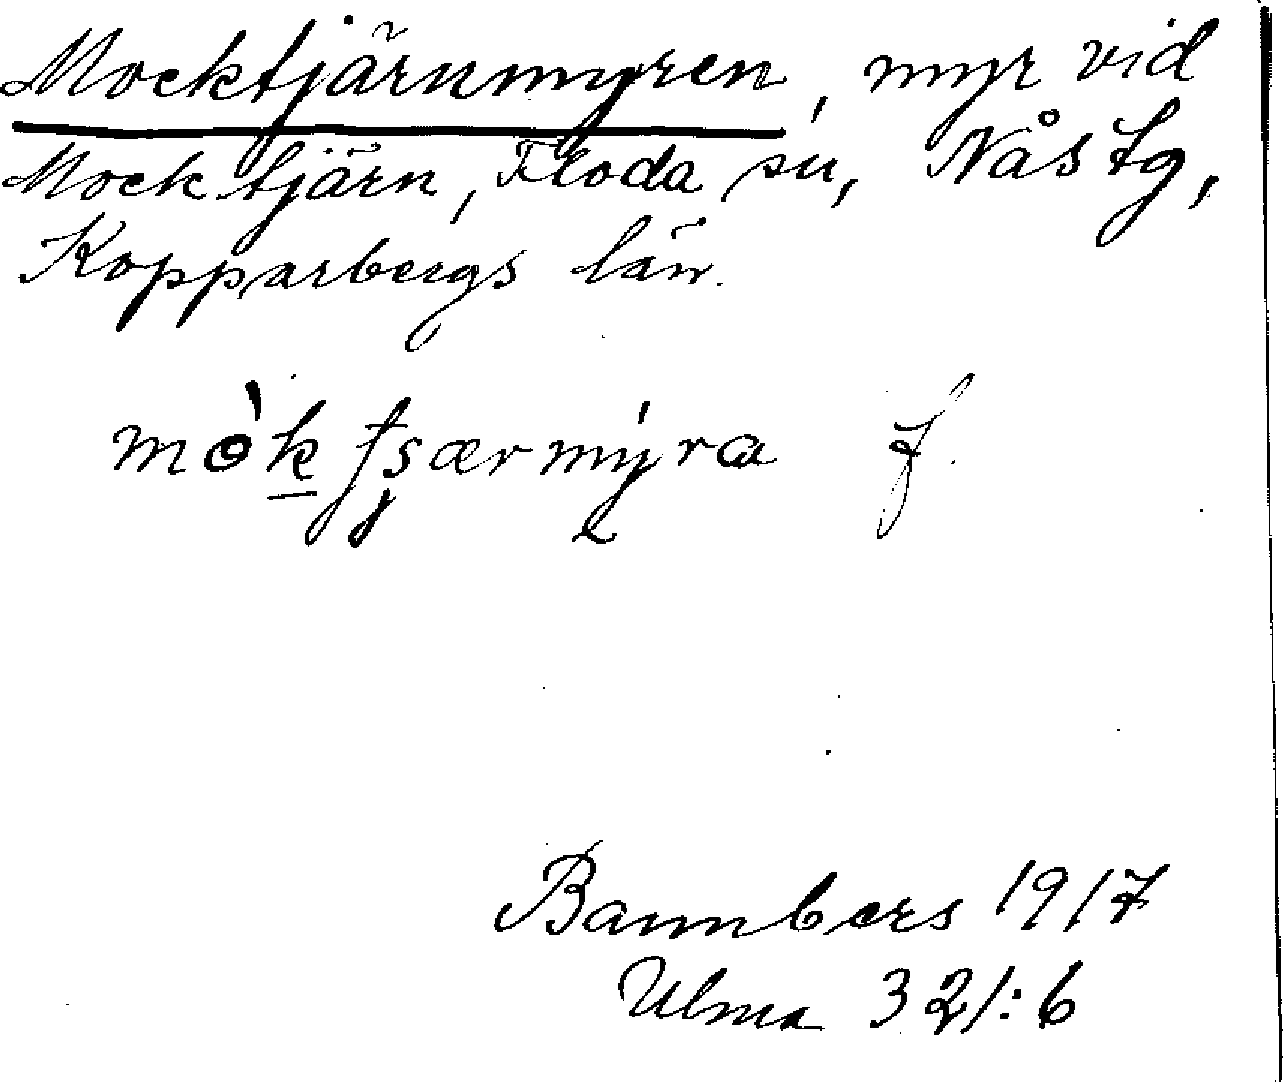 Mocktjärnmyren, myr vid
Mocktjärn, Floda sn, Nås tg,
Kopparbergs län.
f.
Bannbers 1917
Ulma 321:6